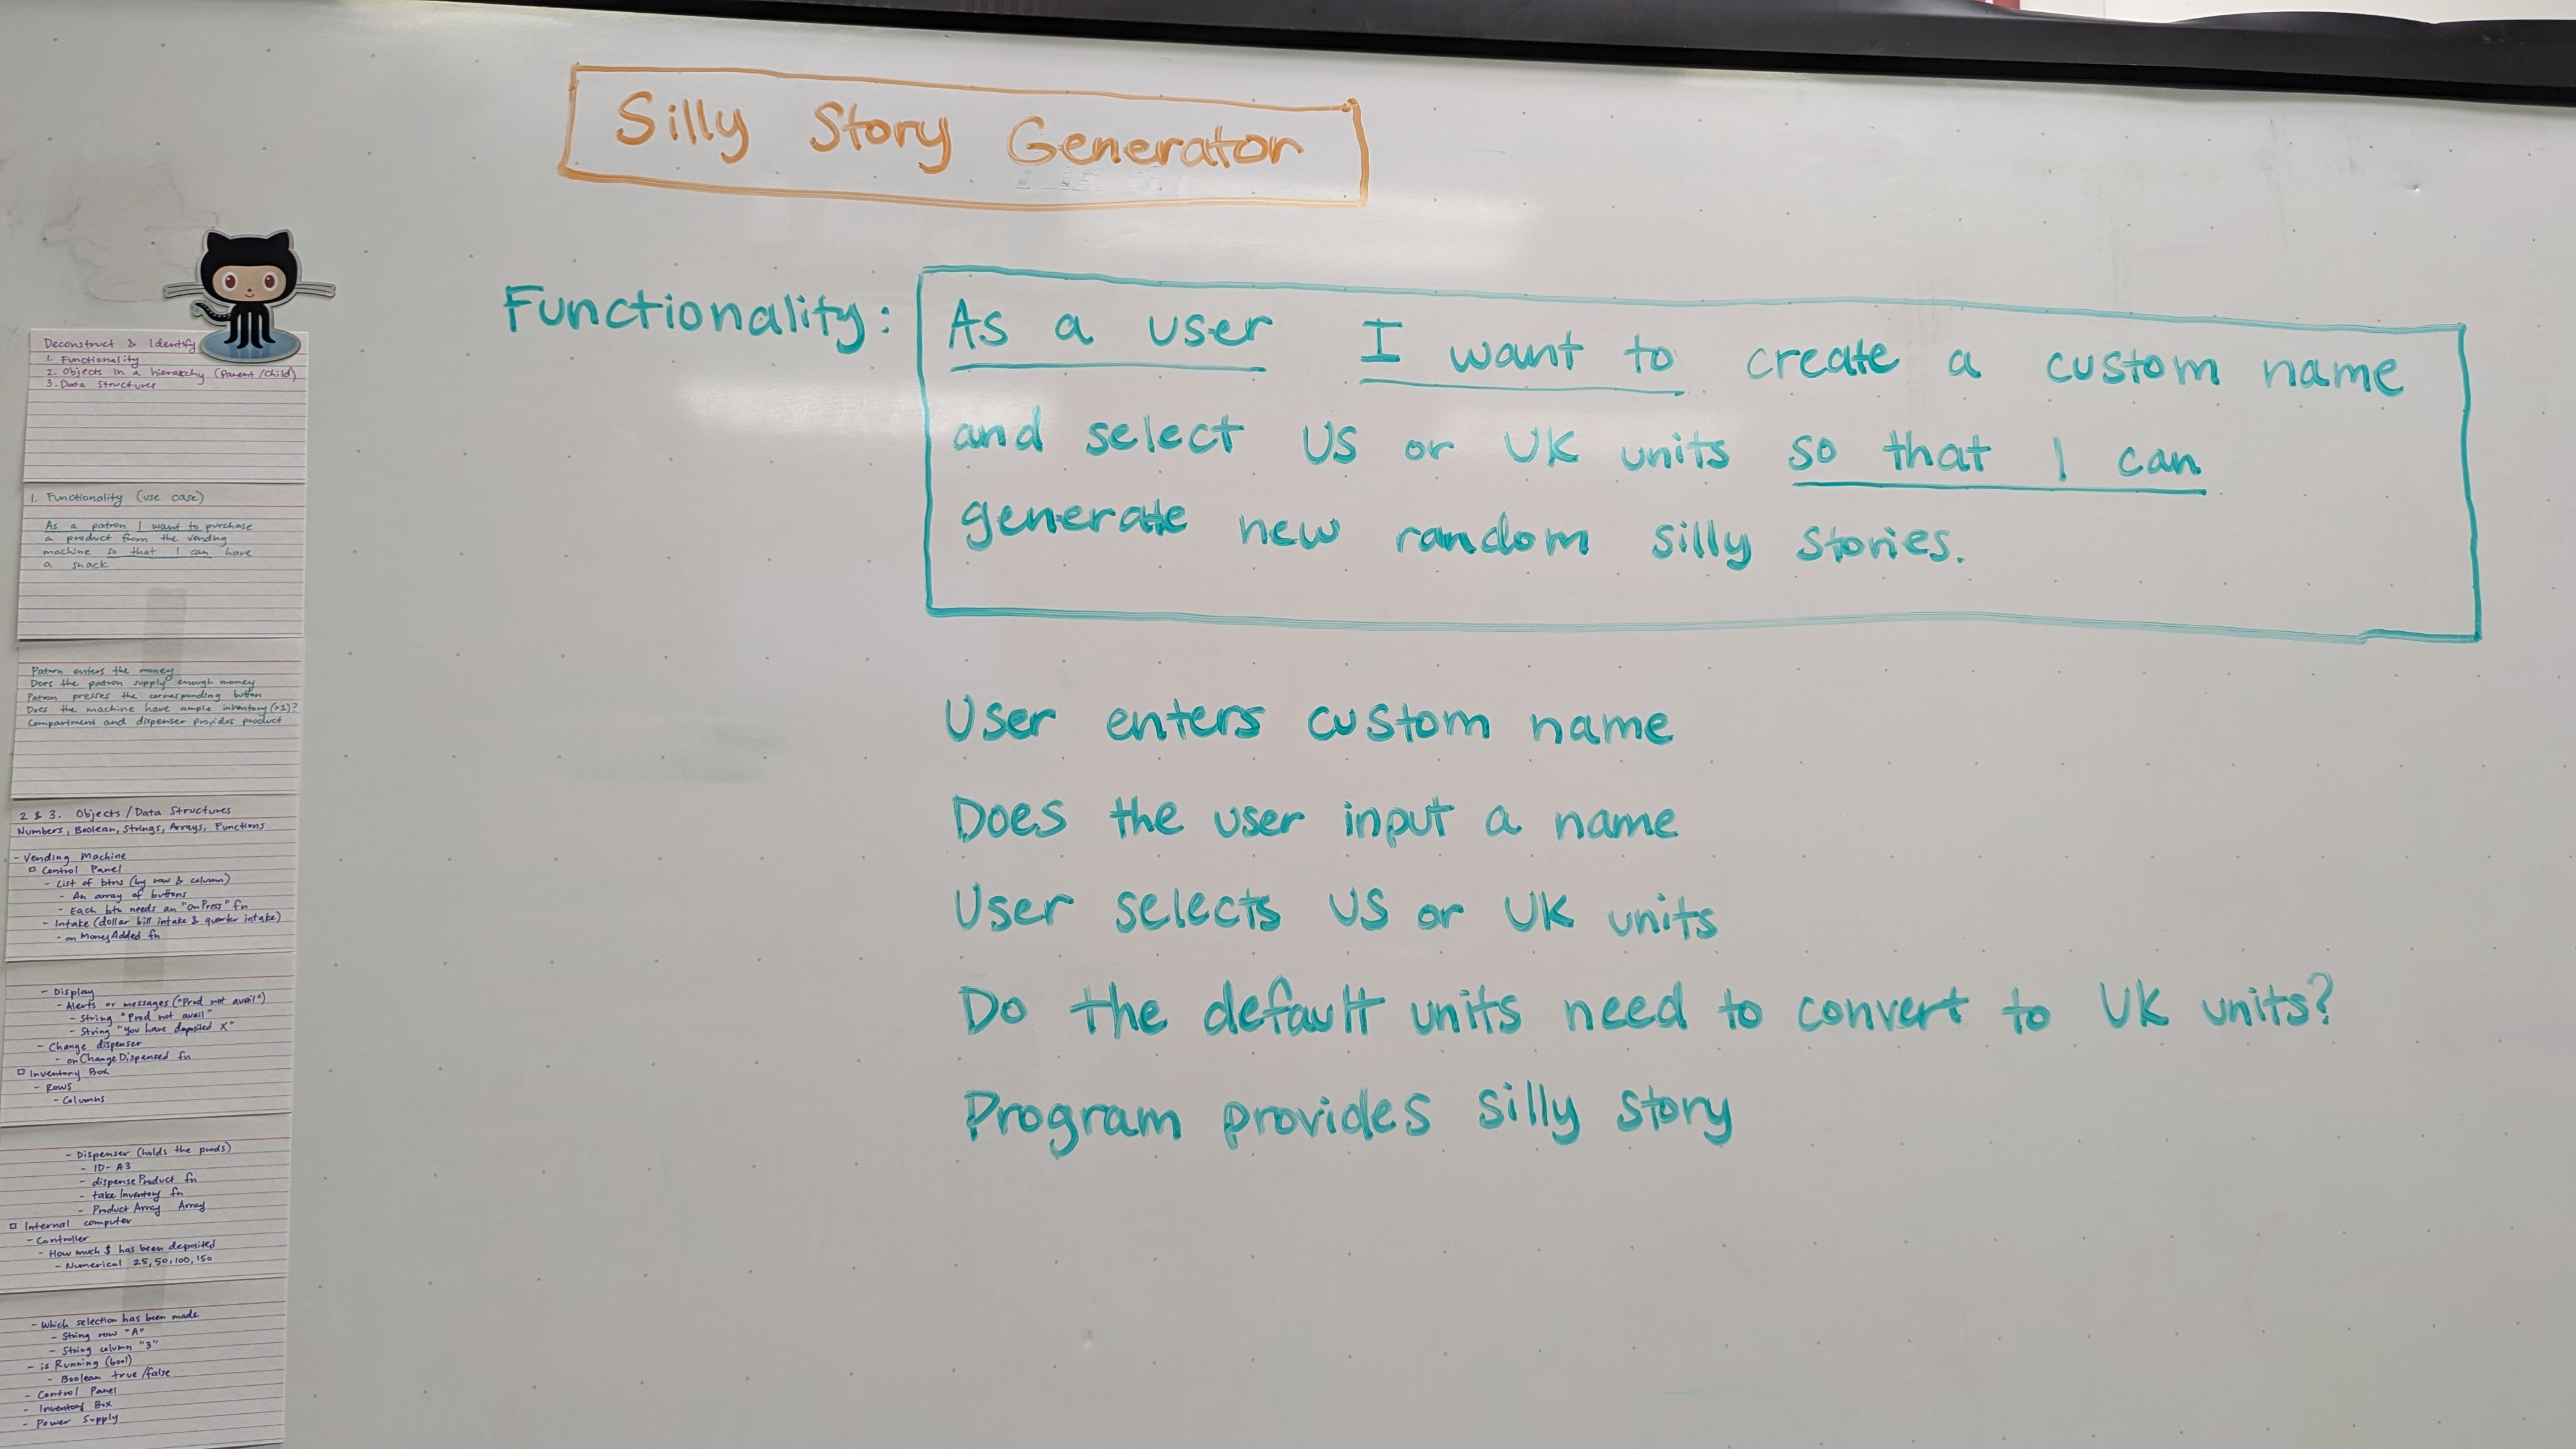 Silly Story Generator
Functionality:
As a user I want to create a custom name
and select US or UK units so that I can
generate new random silly stories.
User enters custom name
Does the user input a name
User selects US or UK units
Do the default units need to convert to UK units?
Program provides silly story
Deconstruct & Identify
1. Functionality
2. Objects in a hierarchy (Parent/Child)
3. Data Structures
1. Functionality (use case)
As a patron I want to purchase
a product from the vending
machine so that I can have
a snack
Patron enters the money
Does the patron supply enough money
Patron presses the corresponding button
Does the machine have ample inventory (>1)?
Compartment and dispenser provides product
2 & 3. Objects / Data Structures
Numbers, Boolean, Strings, Arrays, Functions
- Vending Machine
Control Panel
- List of btns (by row & column)
- An array of buttons
- Each btn needs an "onPress" fn
- Intake (dollar bill intake & quarter intake)
- on MoneyAdded fn
- Display
- Alerts or messages ("Prod not avail")
- String "Prod not avail"
- String "You have deposited X"
- Change dispenser
- onChangeDispensed fn
Inventory Box
- Rows
- Columns
- Dispenser (holds the prods)
- ID - A3
- dispenseProduct fn
- take Inventory fn
- Product Array Array
Internal computer
- Controller
- How much $ has been deposited
- Numerical 25, 50, 100, 150
- Which selection has been made
- String row "A"
- String column "3"
- is Running (bool)
- Boolean true/false
- Control Panel
- Inventory Box
- Power Supply